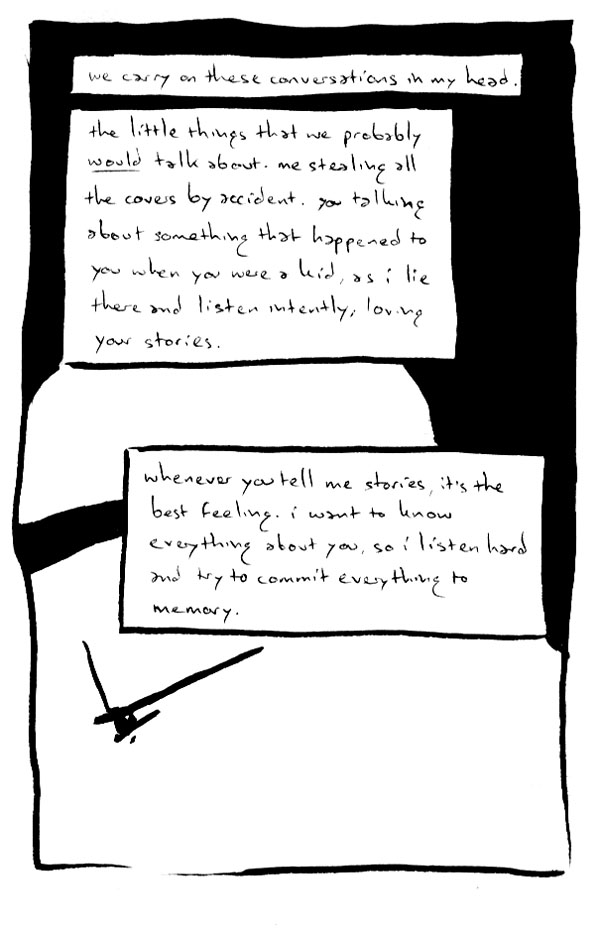 we carry on these conversations in my head.
the little things that we probably
would talk about. me stealing all
the covers by accident. you talking
about something that happened to
you when you were a kid, as i lie
there and listen intently, loving
your stories.
whenever you tell me stories, it's the
best feeling. i want to know
everything about you, so i listen hard
and try to commit everything to
memory.